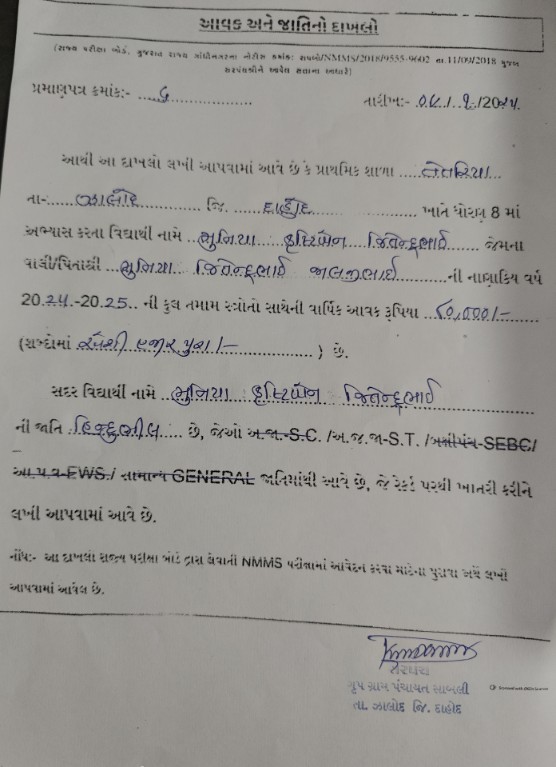 આવક અને જાતિનો દાખલો
(રાજ્ય પરીક્ષા બોર્ડ, ગુજરાત રાજ્ય ગાંધીનગરના નોટીસ ક્રમાંક: રાપબો/NMMS/2018/9555-9602 તા.11/09/2018 મુજબ
સરપંચશ્રીને આપેલ સત્તાના આધારે)
પ્રમાણપત્ર ક્રમાંક:- .....
તારીખ:- /2024.
આથી આ દાખલો લખી આપવામાં આવે છે કે પ્રાથમિક શાળા
તા-..... ઝાલોદ ..... જિ. .... દાહોદ ..... ખાતે ધોરણ 8 માં
અભ્યાસ કરતા વિદ્યાર્થી નામે ..ભુનિયા જિતેન્દ્રભાઈ..... જેમના
વાલી/પિતાશ્રી ..ભુનિયા.. જિતેન્દ્રભાઈ ..... ની નાણાકિય વર્ષ
2024-2025.. ની કુલ તમામ સ્ત્રોતો સાથેની વાર્ષિક આવક રૂપિયા ..૮૦,૦૦૦/-
(શબ્દોમાં એંશી હજાર પુરા/- ..... ) છે.
સદર વિદ્યાર્થી નામે ..ભુનિયા જિતેન્દ્રભાઈ
ની જાતિ .હિન્દુભીલ.... છે, જેઓ અ.જા.-S.C. /અ.જ.જા-S.T. /બક્ષીપંચ-SEBC/
આ.પ.વ-EWS./ સામાન્ય GENERAL જાતિમાંથી આવે છે, જે રેકર્ડ પરથી ખાતરી કરીને
લખી આપવામાં આવે છે.
નોંધ:- આ દાખલો રાજ્ય પરીક્ષા બોર્ડ દ્વારા લેવાની NMMS પરીક્ષામાં આવેદન કરવા માટેના પુરાવા અર્થે લખી
આપવામાં આવેલ છે.
સરપંચ
ગૃપ ગ્રામ પંચાયત સાબલી
તા. ઝાલોદ જિ. દાહોદ